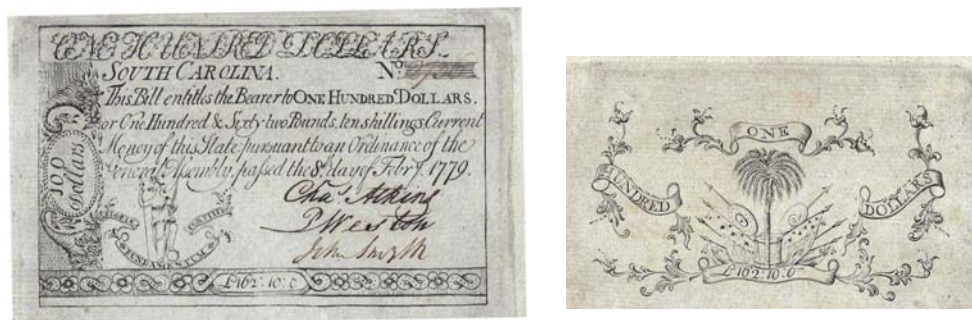 ONE HUNDRED DOLLARS.
SOUTH CAROLINA. No.
This Bill entitles the Bearer to ONE HUNDRED DOLLARS.
or One Hundred & Sixty two Pounds, ten shillings Current
Money of this State pursuant to an Ordinance of the
General Assembly, passed the 8th. day of Febry. 1779.
100 Dollars.
Chas. Atkins
P Weston
John Smyth
FUNDAMENTUM
£162:10:0
ONE
HUNDRED
DOLLARS
£162:10:0